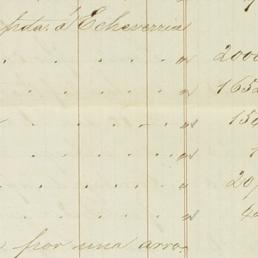 pda. á Echeverria
" 2000
" 1652
" 150
" 1
" 20
" 4
por una arro-